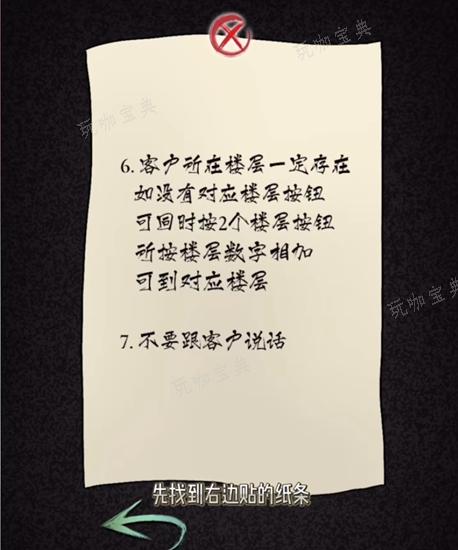 玩咖宝典
玩咖宝典
6. 客户所在楼层一定存在
如没有对应楼层按钮
可同时按2个楼层按钮
所按楼层数字相加
可到对应楼层
玩咖宝典
7. 不要跟客户说话
玩咖宝典
先找到右边贴的纸条